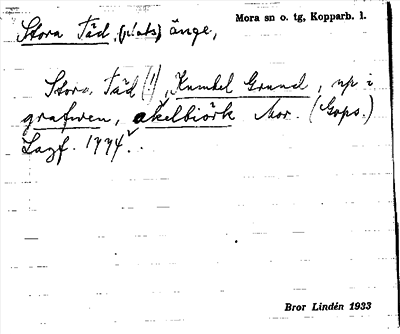 Stora Täd, (plats) änge,
Mora sn o. tg, Kopparb. l.
Stora Täd (!), Kumbel Grund, up i
grafwen, akelbiörk Mor. (Gops.)
Lagf. 1774.
Bror Lindén 1933